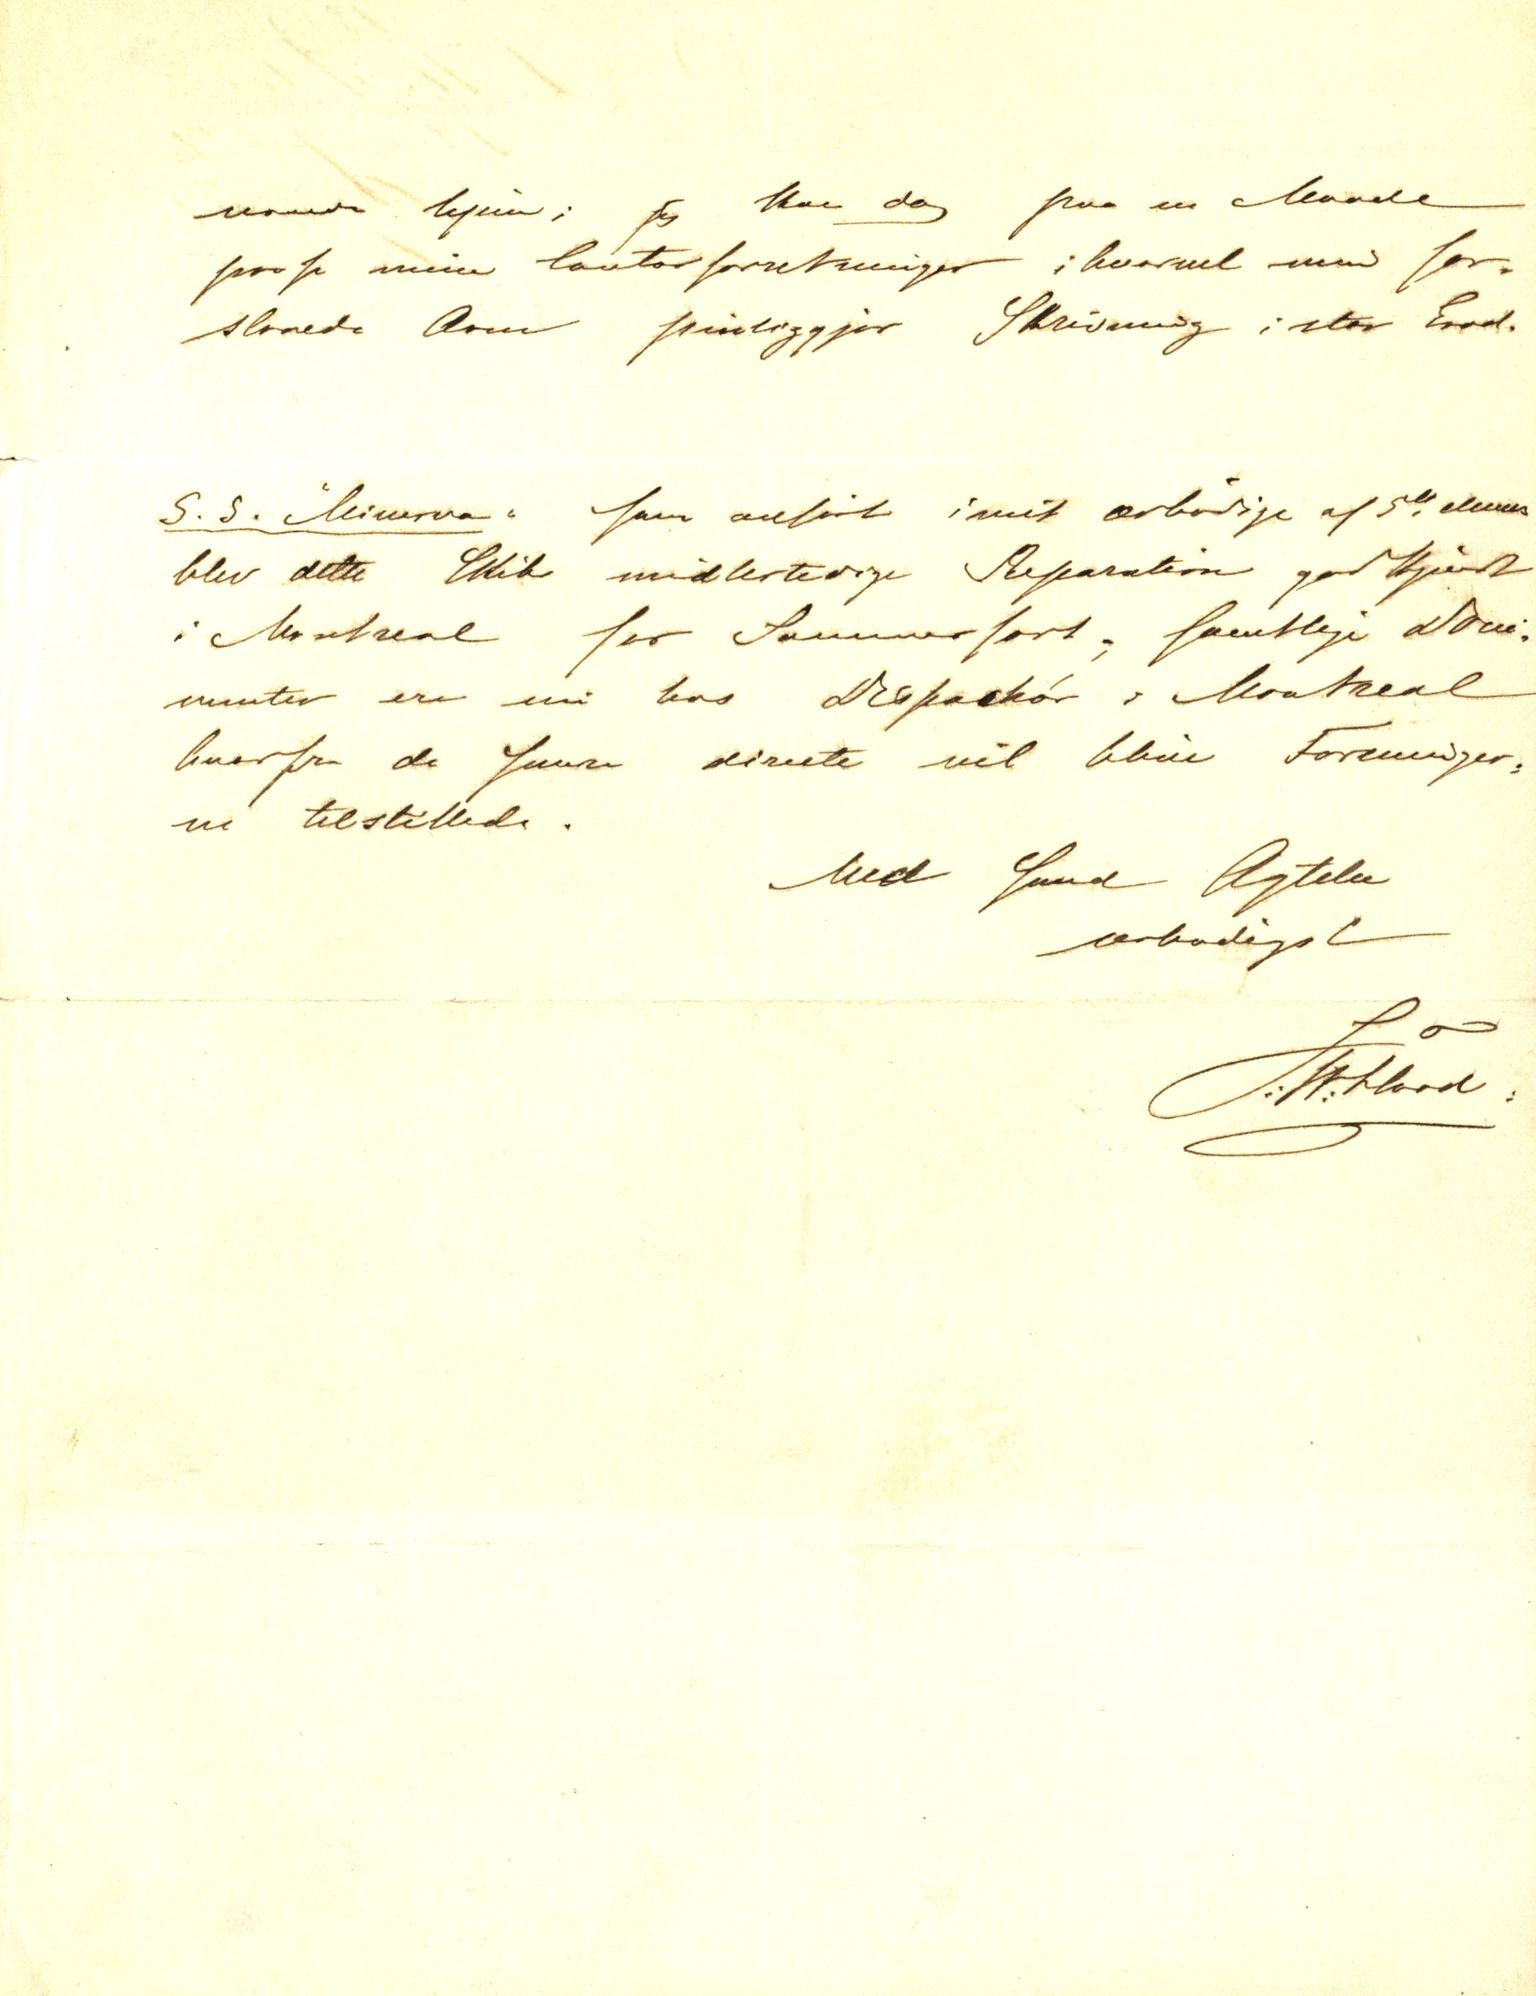 hjem; jeg kan dog paa en Maade
passe mine Contorforretninger, ihvorvel min for-
slaaede Arm pinliggjør Skrivning i stor Grad.
S. S. "Minerva" som anført i mit ærbödige af 5te dennes
blev dette Skib midlertidige Reparation godkjendt
i Montreal for Sommerfart; samtlige Docu-
menter ere nu hos Dispachör i Montreal
hvorfra de senere directe vil blive Foreninger-
ne tilstillede.
Med sand Agtelse
ærbødigst